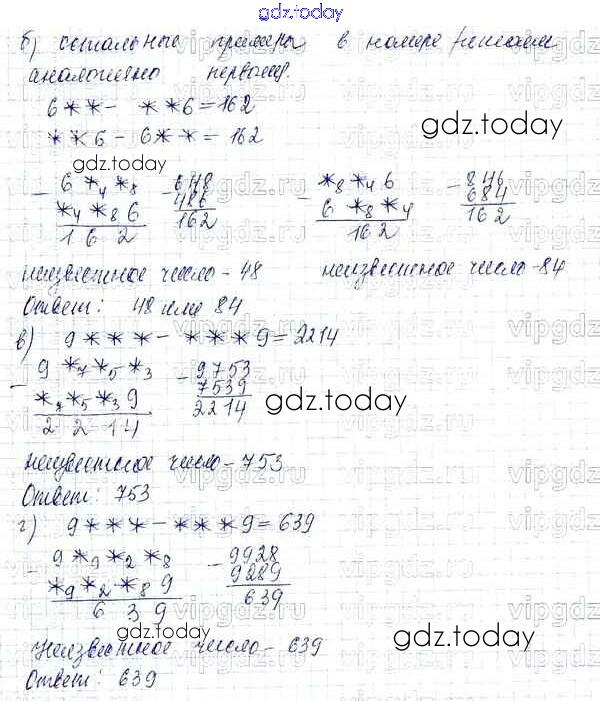 gdz.today
б) остальные примеры в номере решаем
аналогично первому.
6**- **6=162
**6-6**=162
gdz.today
gdz.today
- 6*₄*₈ - 648 - *₈*₄6 - 846
*₄*₈6 486 6*₈*₄ 684
162 162 162 162
неизвестное число-48 неизвестное число-84
Ответ: 48 или 84
в) 9***- ***9=2214
- 9*₇*₅*₃ - 9753
*₇*₅*₃9 7539
2214 2214
gdz.today
неизвестное число-753
Ответ: 753
г) 9***-***9=639
- 9*₉*₂*₈ - 9928
*₉*₂*₈9 9289
639 639
gdz.today
gdz.today
Неизвестное число- 639
Ответ: 639
vipgdz.ru